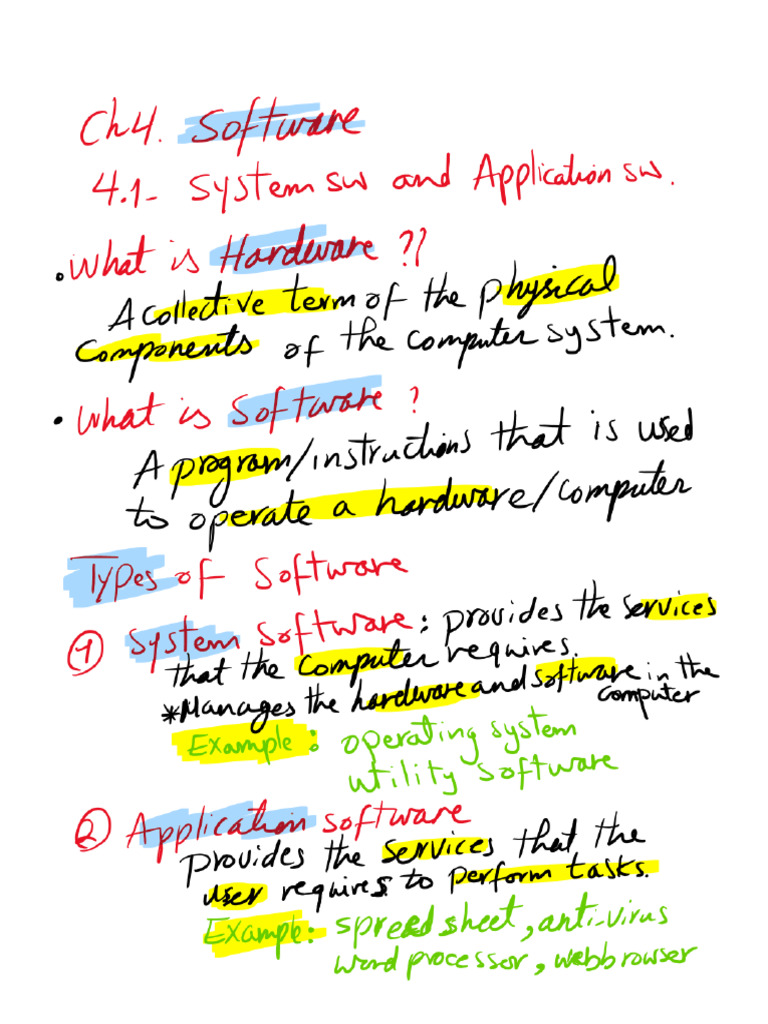 Ch4. Software
4.1- System sw and Application sw.
• What is Hardware ??
A collective term of the physical
components of the computer system.
• What is Software ?
A program/instructions that is used
to operate a hardware/computer
Types of Software
① System Software: provides the services
that the computer requires.
*Manages the hardware and software in the
computer
Example: operating system
utility software
② Application software
provides the services that the
user requires to perform tasks.
Example: spreadsheet, anti-virus
word processor, webbrowser